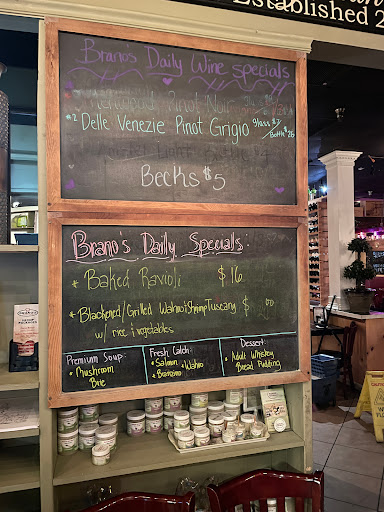 Established 2
Brano's Daily Wine specials
Pinot Noir
#2 Delle Venezie Pinot Grigio glass $7
Bottle $26
Becks $5
Brano's Daily Specials:
* Baked Ravioli $16
* Blackened/Grilled Wahoo & Shrimp Tuscany $
w/ rice & vegetables
Premium Soup:
* Mushroom
Brie
Fresh Catch:
* Salmon * Wahoo
* Branzino
Dessert:
* Adult Whiskey
Bread Pudding